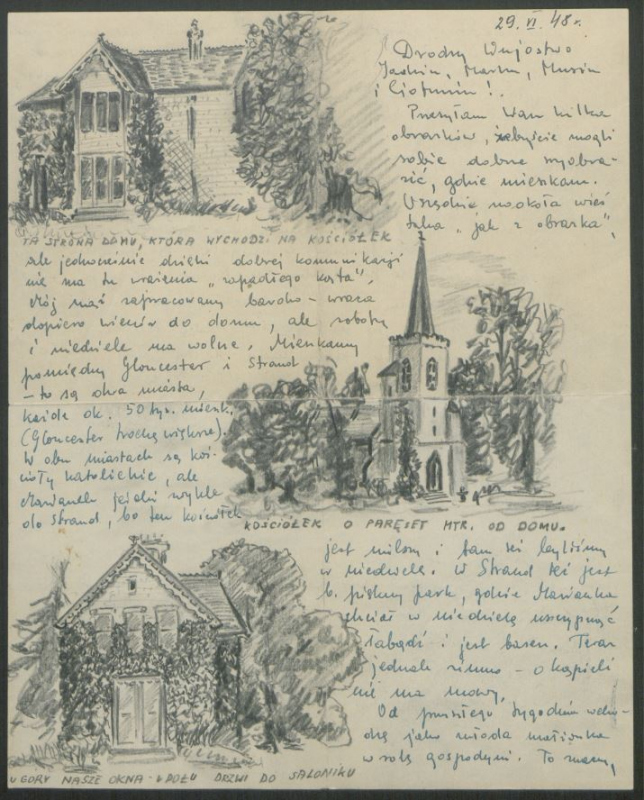 29. VI. 48 r.
Drodzy Wujostwo
i Ciotuniu!
Przesyłam Wam kilka
obrazków, żebyście mogli
sobie dobrze wyobra-
zić, gdzie mieszkam.
Urzędnie naokoła wieś
tulna „jak z obrazka",
TA STRONA DOMU, KTÓRA WYCHODZI NA KOŚCIÓŁEK
ale jednocześnie dzięki dobrej komunikacji
nie ma tu wrażenia „zapadłego kąta".
Mój mąż zapracowany bardzo – wraca
dopiero wieczór do domu, ale soboty
i niedziele ma wolne. Mieszkamy
pomiędzy Gloucester i Stroud
– to są dwa miasta,
każde ok. 50 tys. mieszk.
(Gloucester trochę większe).
W obu miastach są koś-
cioły katolickie, ale
jeździ zwykle
do Stroud, bo ten kościółek
KOŚCIÓŁEK O PARĘSET MTR. OD DOMU.
jest milszy i tam też byliśmy
w niedzielę. W Stroud też jest
b. piękny park, gdzie Marianka
chciał w niedzielę uszczypnąć
łabędź i jest basen. Teraz
jednak zimno – o kąpieli
nie ma mowy.
Od przyszłego tygodnia wcho-
dzę jako młoda mężatka
w rolę gospodyni. To znaczy,
U GÓRY NASZE OKNA - U DOŁU DRZWI DO SALONIKU